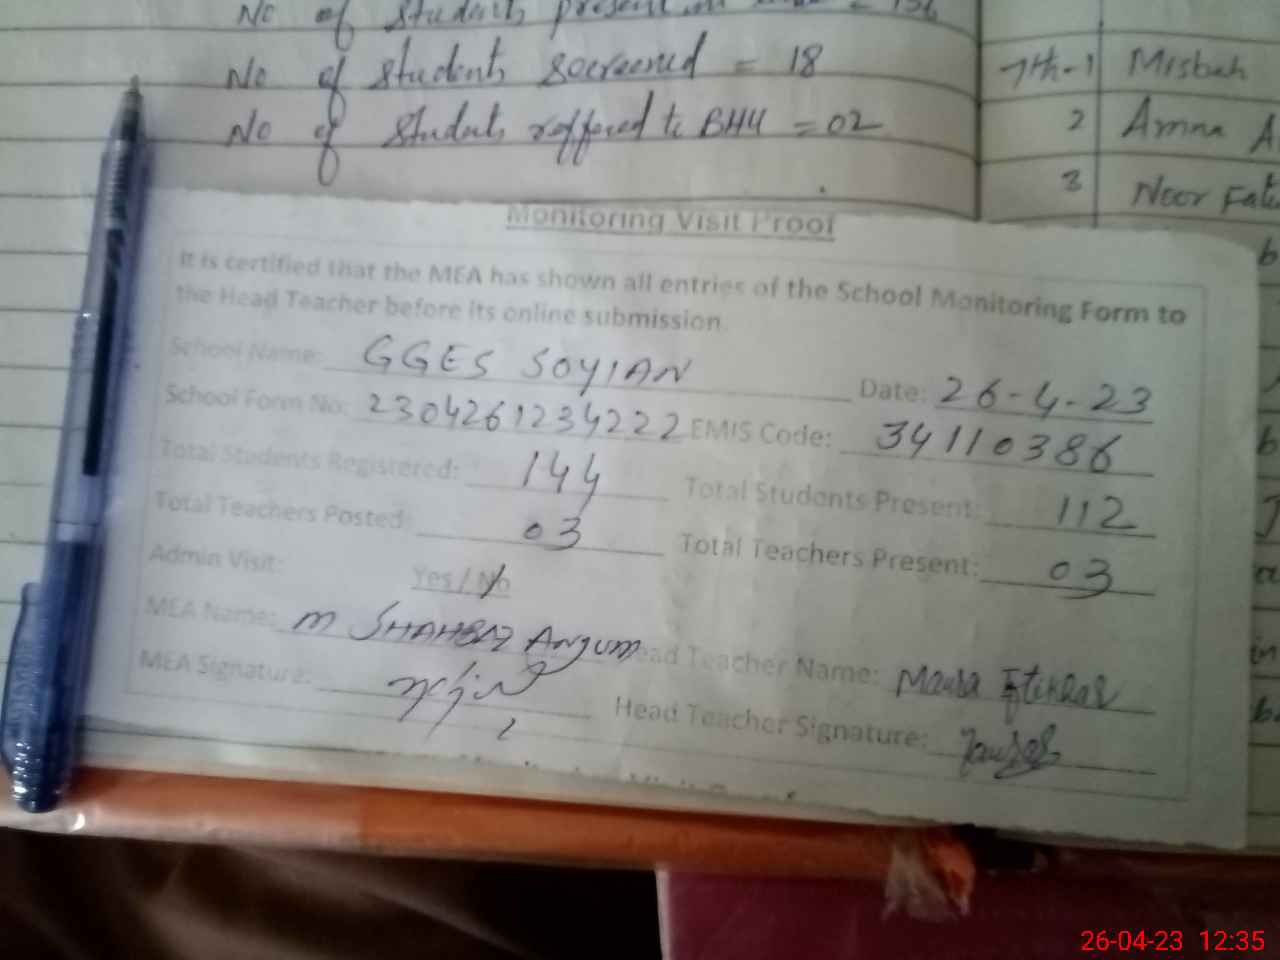 No of Students present
No of Students screened = 18
No of Students reffered to BHU = 02
7th-1 Misbah
2 Amna A
3 Noor Fati
Monitoring Visit Proof
It is certified that the MEA has shown all entries of the School Monitoring Form to
the Head Teacher before its online submission.
School Name: GGES SOYIAN Date: 26-4-23
School Form No: 2304261234222 EMIS Code: 34110386
Total Students Registered: 144 Total Students Present: 112
Total Teachers Posted: 03 Total Teachers Present: 03
Admin Visit: Yes / No
MEA Name: M SHAHBAZ ANJUM Head Teacher Name:
MEA Signature: Head Teacher Signature:
26-04-23 12:35